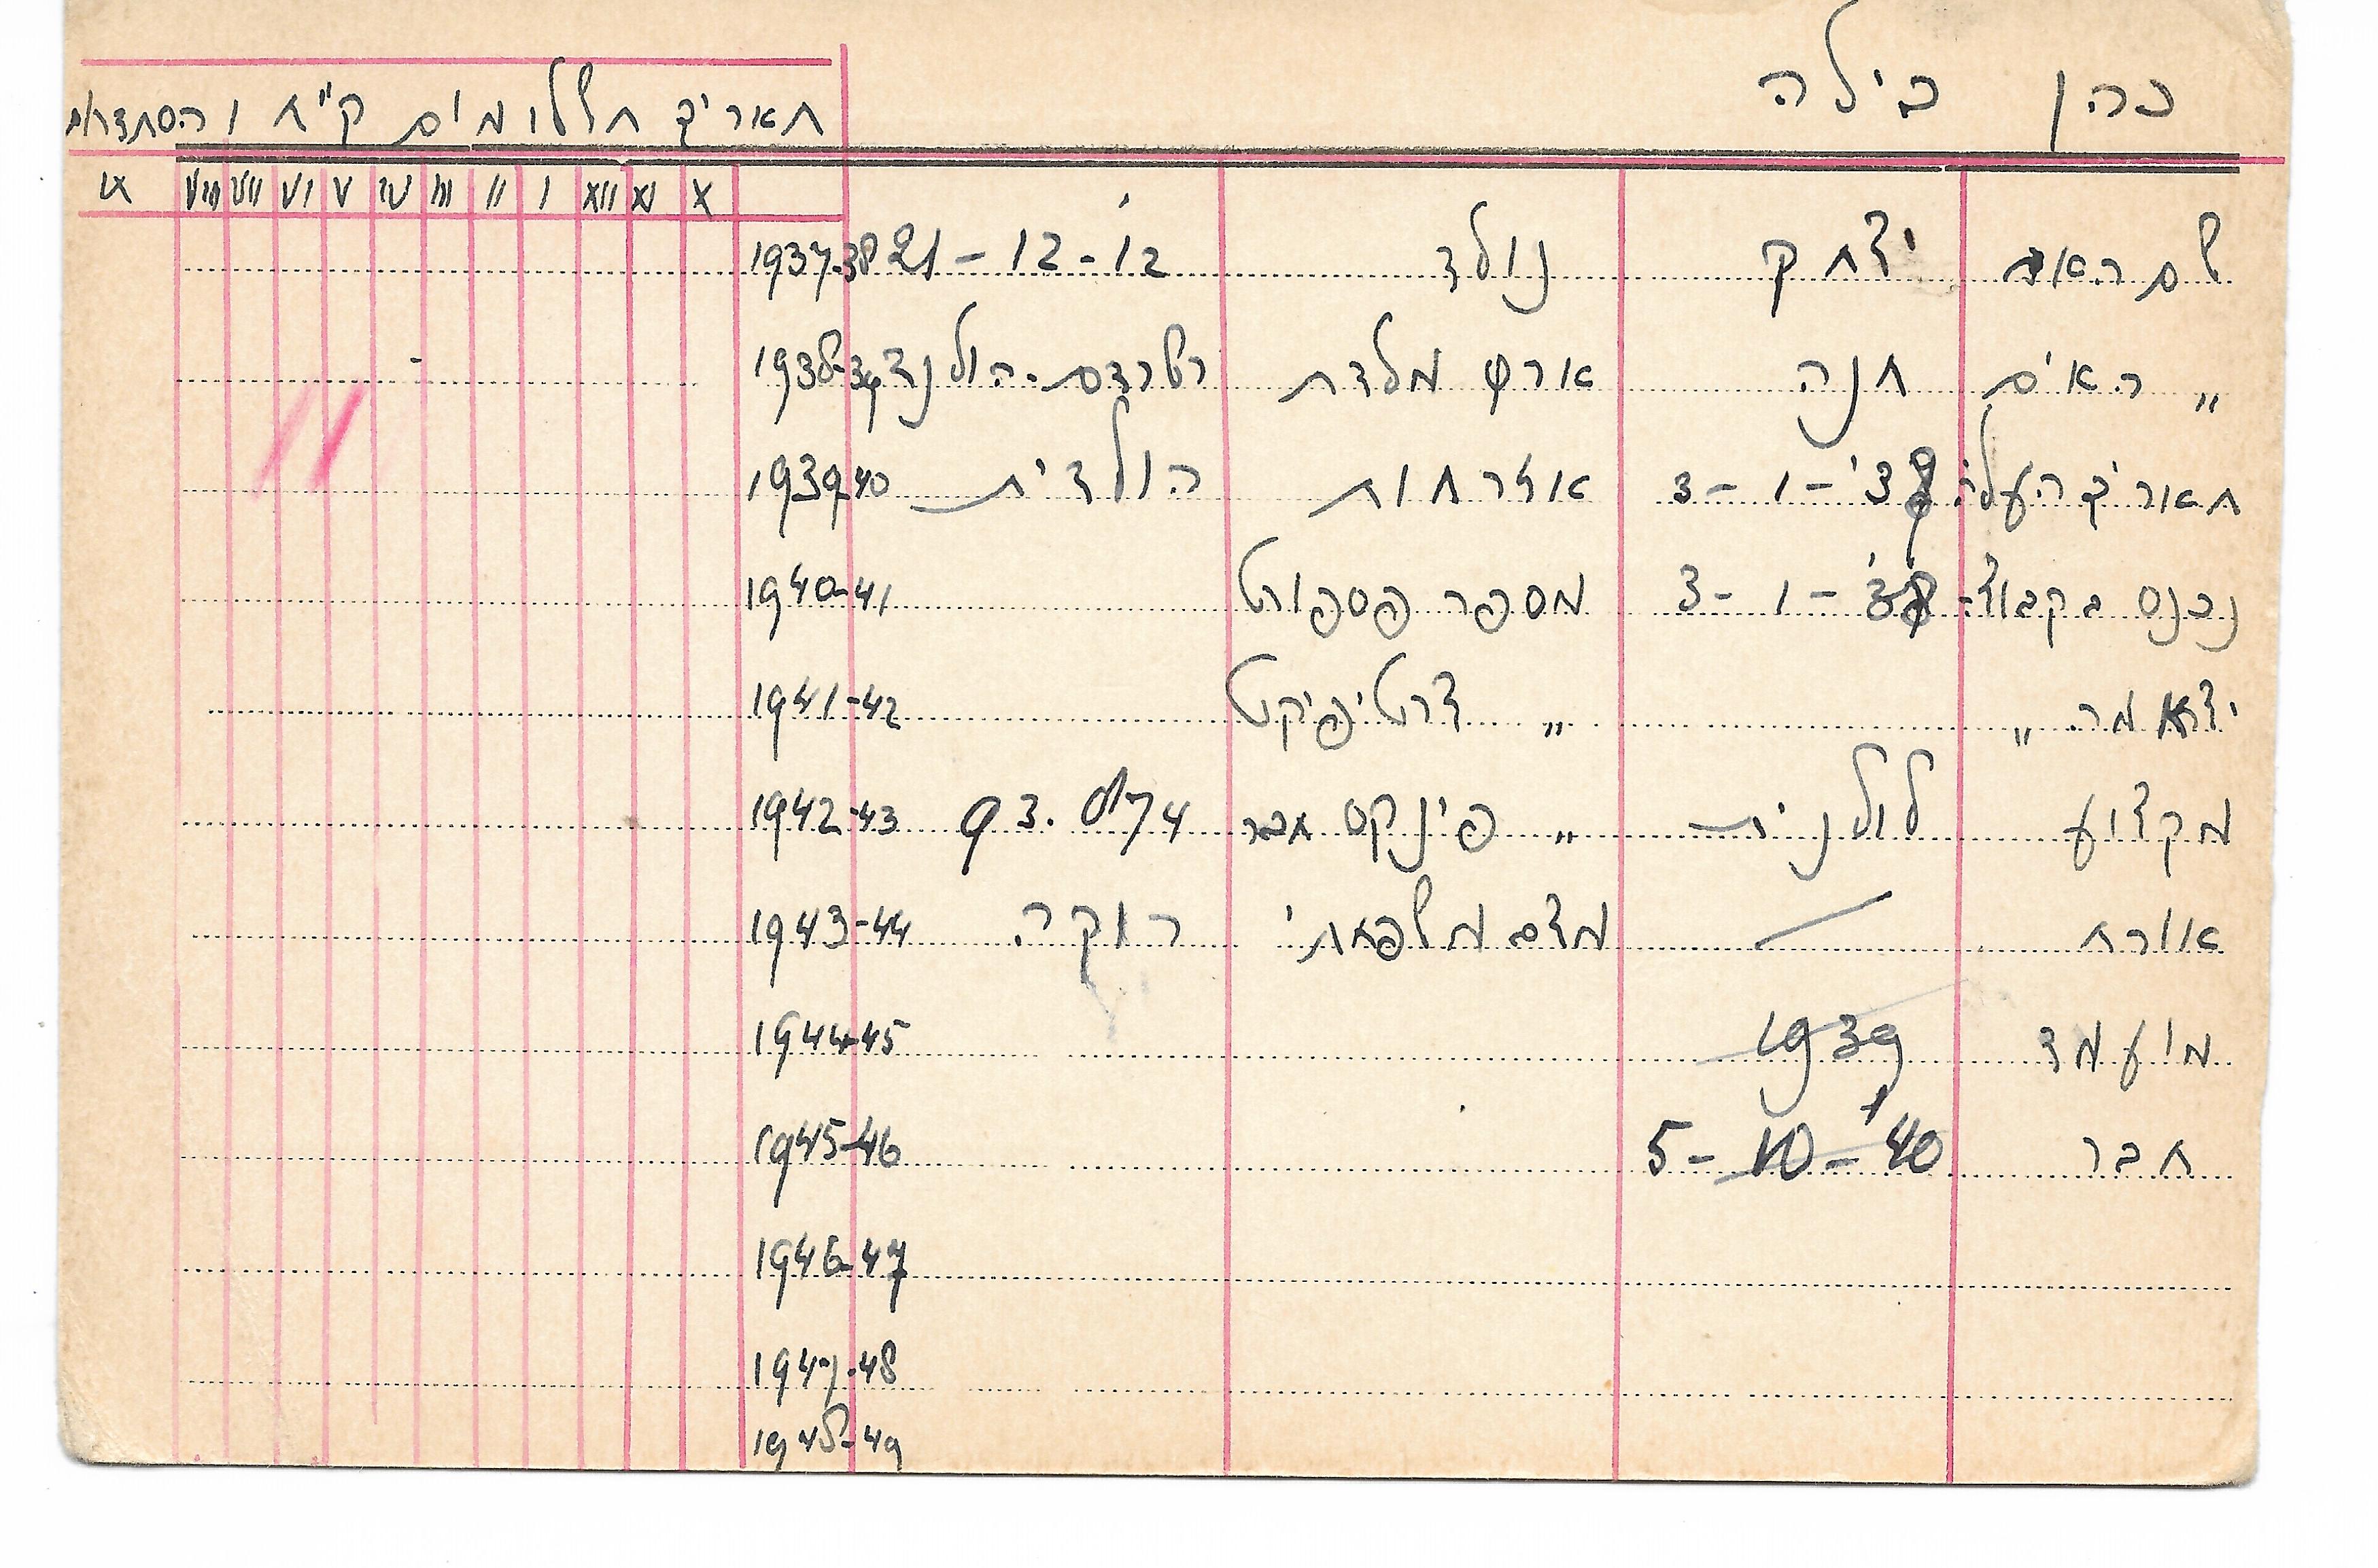 כהן בילה
תאריך תשלומים ק"ח והסתדרות
X XI XII I II III IV V VI VII VIII IX
שם האב יצחק נולד 21-12-12 1937-38
" האם חנה ארץ מולדת הולנד 1938-39
תאריך העליה 3-1-'38 אזרחות הולנדית 1939-40
נכנס בקבוצ 3-1-'38 מספר פספורט 1940-41
" " סרטיפיקט 1941-42
מקצוע לולנית " פינקס חבר 93.074 1942-43
אורח — מצב משפחתי רוקה 1943-44
מועמד 1939 1944-45
חבר 5-10-'40 1945-46
1946-47
1947-48
1948-49